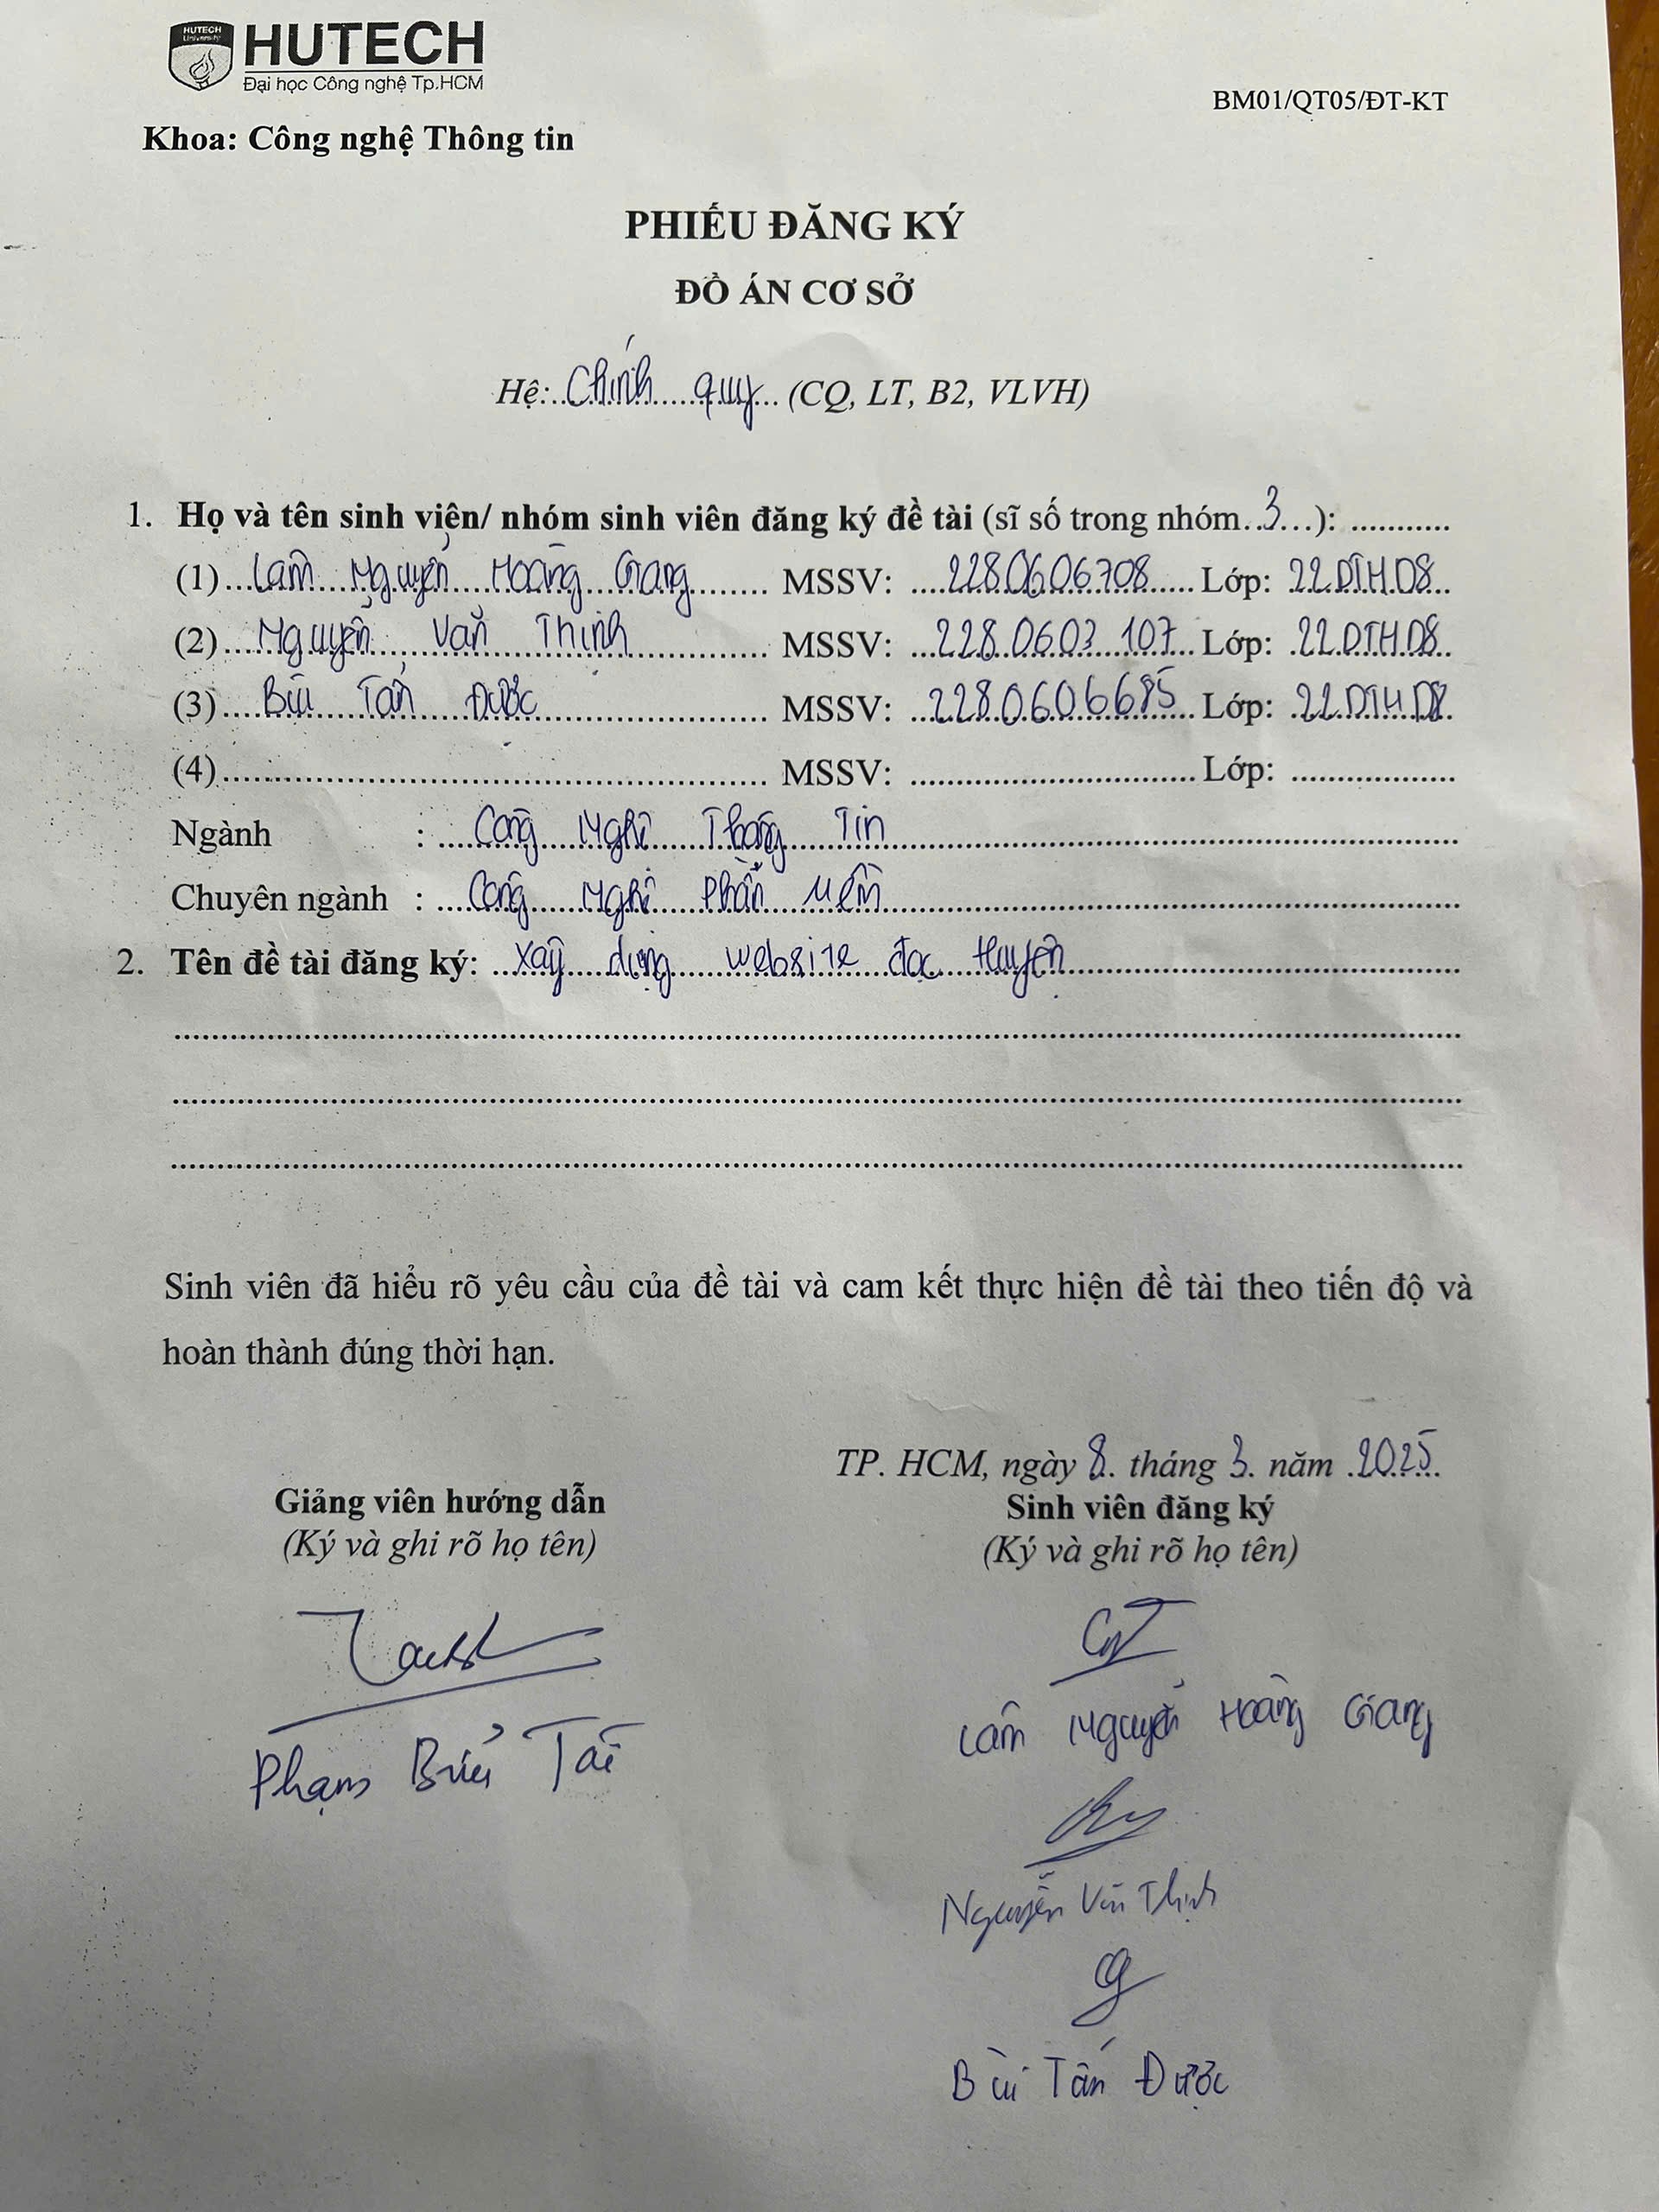 HUTECH
University
HUTECH
Đại học Công nghệ Tp.HCM
BM01/QT05/ĐT-KT
Khoa: Công nghệ Thông tin
PHIẾU ĐĂNG KÝ
ĐỒ ÁN CƠ SỞ
Hệ: Chính quy (CQ, LT, B2, VLVH)
1. Họ và tên sinh viên/ nhóm sinh viên đăng ký đề tài (sĩ số trong nhóm 3): ...........
(1) Lâm Nguyễn Hoàng Giang MSSV: 2280606708 Lớp: 22DTHD8
(2) Nguyễn Văn Thịnh MSSV: 2280603107 Lớp: 22DTHD8
(3) Bùi Tấn Được MSSV: 2280606685 Lớp: 22DTHD8
(4) MSSV: Lớp:
Ngành : Công Nghệ Thông Tin
Chuyên ngành : Công Nghệ Phần Mềm
2. Tên đề tài đăng ký: Xây dựng website đọc truyện
Sinh viên đã hiểu rõ yêu cầu của đề tài và cam kết thực hiện đề tài theo tiến độ và
hoàn thành đúng thời hạn.
TP. HCM, ngày 8 tháng 3 năm 2025
Giảng viên hướng dẫn
(Ký và ghi rõ họ tên)
Phạm Bửu Tài
Sinh viên đăng ký
(Ký và ghi rõ họ tên)
Lâm Nguyễn Hoàng Giang
Nguyễn Văn Thịnh
Bùi Tấn Được